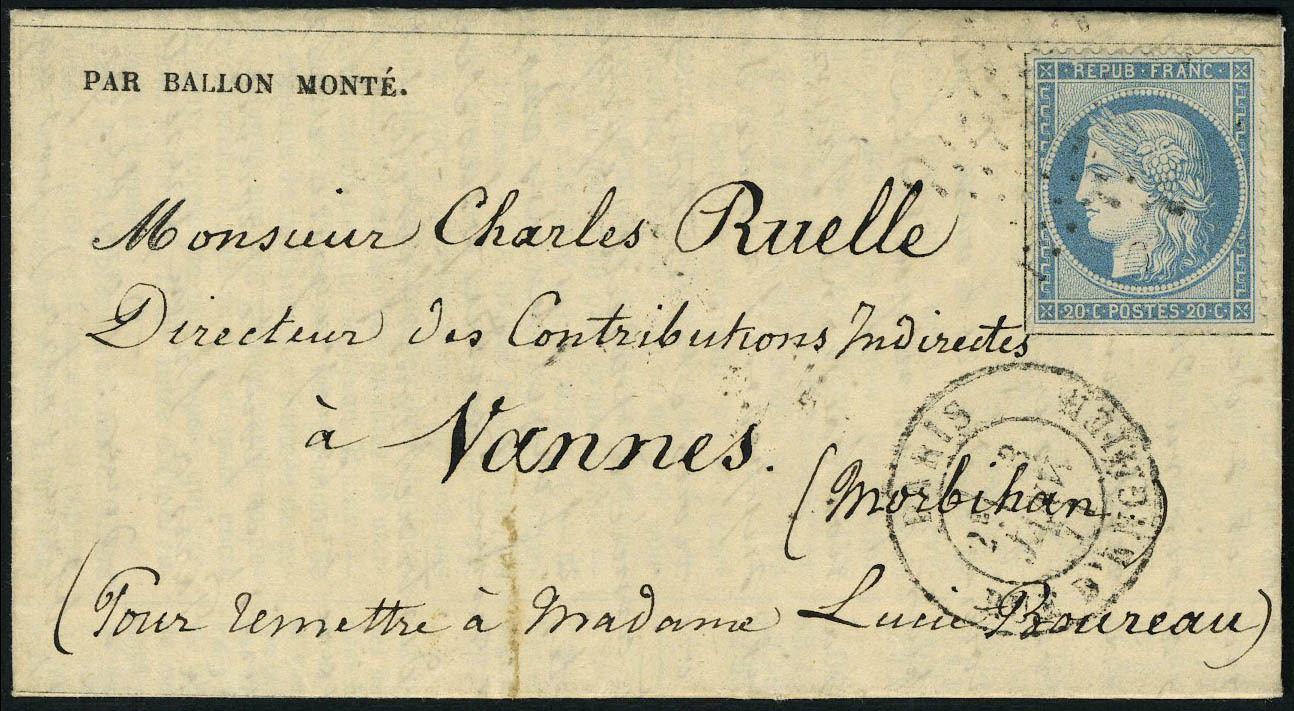 PAR BALLON MONTÉ.
REPUB · FRANC ·
20 · C · POSTES · 20 · C ·
Monsieur Charles Ruelle
Directeur des Contributions Indirectes
à Vannes.
(Morbihan)
(Pour remettre à Madame Lucie Boureau)
PARIS
2E
3
JANV
71